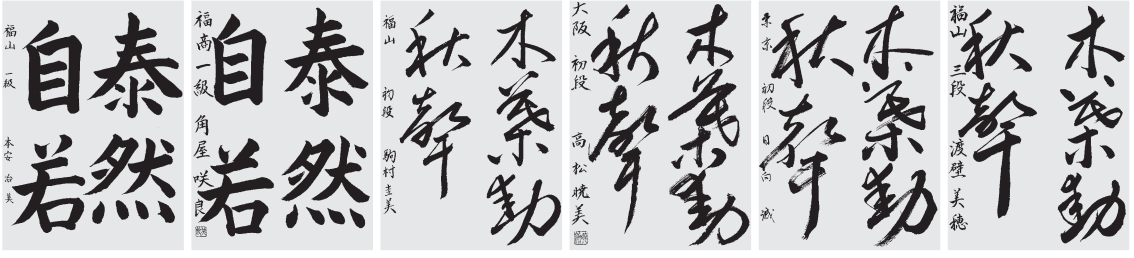 泰然
自若
福山 一級 本安 治美
泰然
自若
福高一級 角屋咲良
木葉動
秋聲
福山 初段 駒村圭美
木葉動
秋聲
大阪 初段 高松暁美
木葉動
秋聲
東京 初段 日向 誠
木葉動
秋聲
福山 三段 渡壁美穂